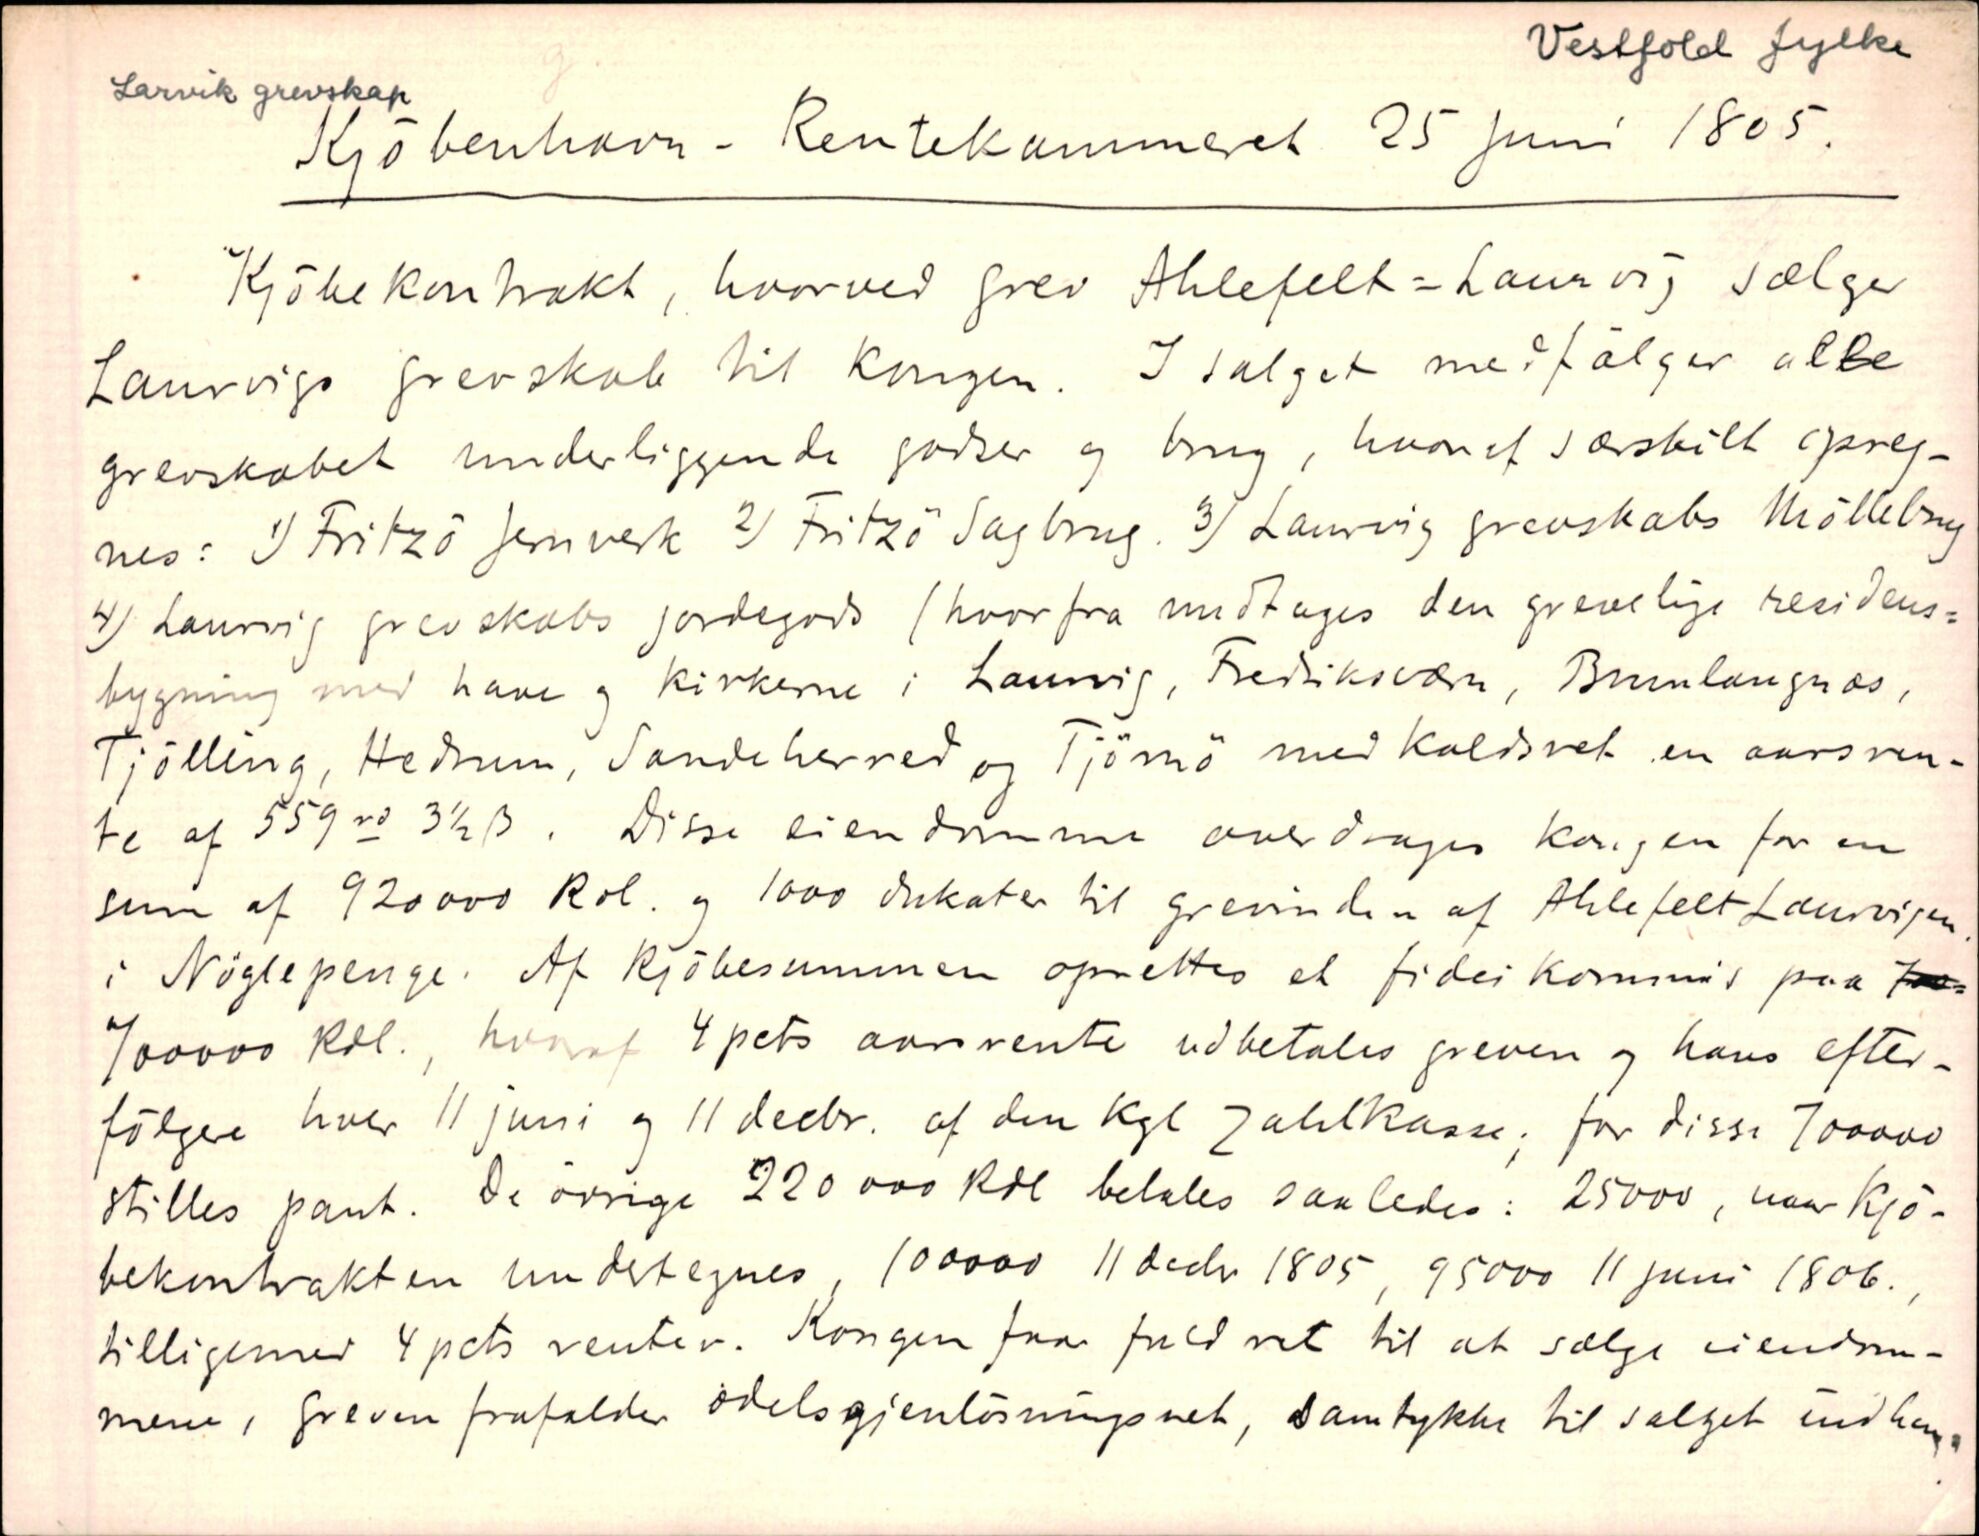 Vestfold fylke
Larvik grevskap
Kjöbenhavn - Rentekammeret 25 juni 1805.
Kjöbekontrakt, hvorved grev Ahlefelt=Laurvig sælger
Laurvigs grevskab til kongen. I salget medfölger alle
grevskabet underliggende godser og brug, hvoraf særskilt opreg-
nes: 1) Fritzö Jernverk 2) Fritzö Sagbrug. 3) Laurvig grevskabs Möllebrug
4) Laurvig grevskabs jordegods (hvorfra undtages den grevelige residens=
bygning med have og kirkerne i Laurvig, Fredriksværn, Brunlangnæs,
Tjölling, Hedrum, Sandeherred og Tjömö med kaldsret en aarsren-
te af 559 rd 3½ β. Disse eiendomme overdrages kongen for en
sum af 920000 Rdl. og 1000 dukater til grevinden af Ahlefelt Laurvigen
i Nöglepenge. Af kjöbesummen oprettes et fideikommis paa
700000 Rdl., hvoraf 4 pcts aarsrente udbetales greven og hans efter-
fölgere hver 11 juni og 11 decbr. af den kgl Zahlkasse; for disse 700000
stilles pant. De övrige 220000 Rdl betales saaledes: 25000, naar kjö-
bekontrakten undertegnes, 100000 11 decbr 1805, 95000 11 juni 1806.,
tilligemed 4 pcts renter. Kongen faar fuld ret til at sælge eiendom-
mene, greven frafalder odelsgjenlösningsret, samtykke til salget indhen-